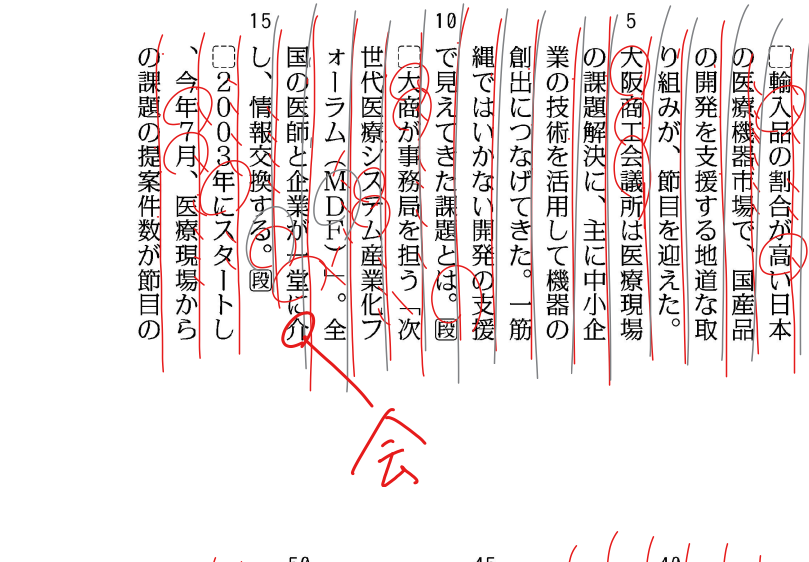 15 10 5
□輸入品の割合が高い日本
の医療機器市場で、国産品
の開発を支援する地道な取
り組みが、節目を迎えた。
大阪商工会議所は医療現場
の課題解決に、主に中小企
業の技術を活用して機器の
創出につなげてきた。一筋
縄ではいかない開発の支援
で見えてきた課題とは。段
□大商が事務局を担う「次
世代医療システム産業化フ
ォーラム（MDF）」。全
国の医師と企業が一堂に介
し、情報交換する。段
□2003年にスタートし
、今年7月、医療現場から
の課題の提案件数が節目の
会